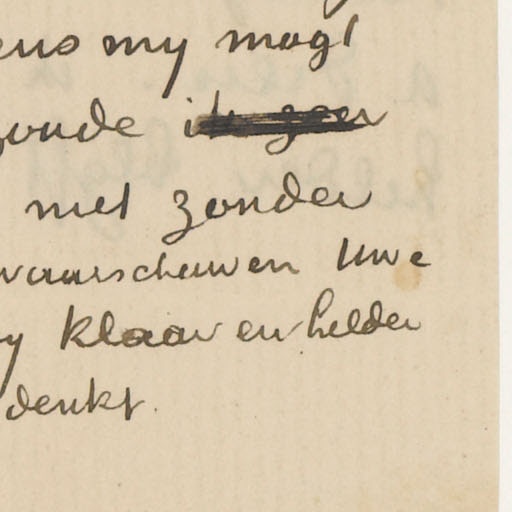 ens my mogt
zonde
niet zonder
waarschuwen Uwe
y klaar en helder
denkt.